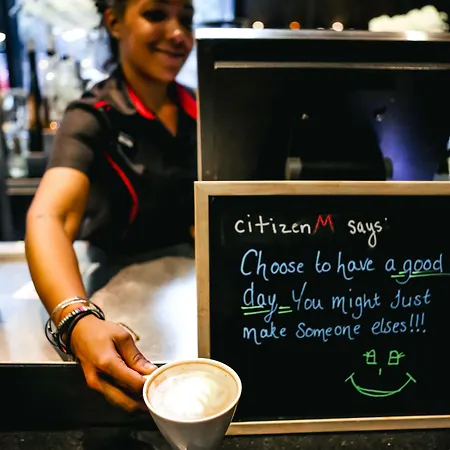 citizenM says:
Choose to have a good
day. You might Just
make someone elses!!!